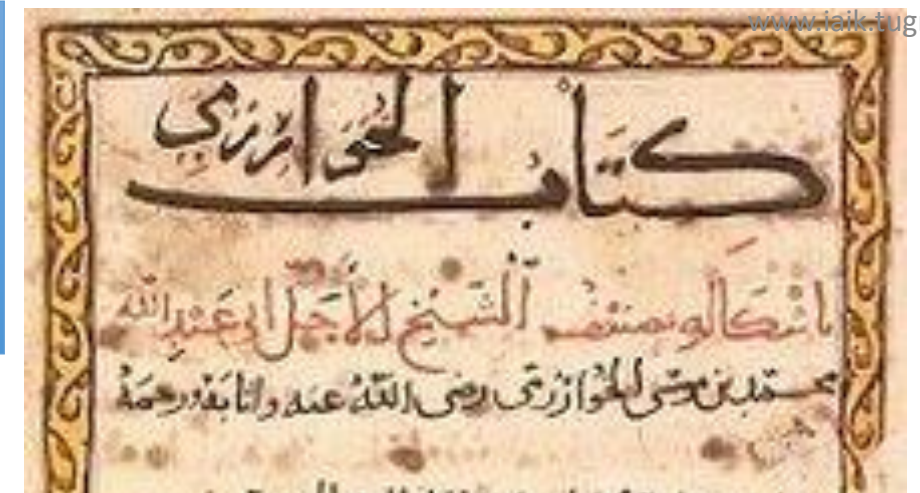 www.iaik.tug
كتاب الخوارزمي
باشكاله وتصنيف الشيخ الأجل ابو عبد الله
محمد بن موسى الخوارزمي رضى الله عنه واثابه ورحمة